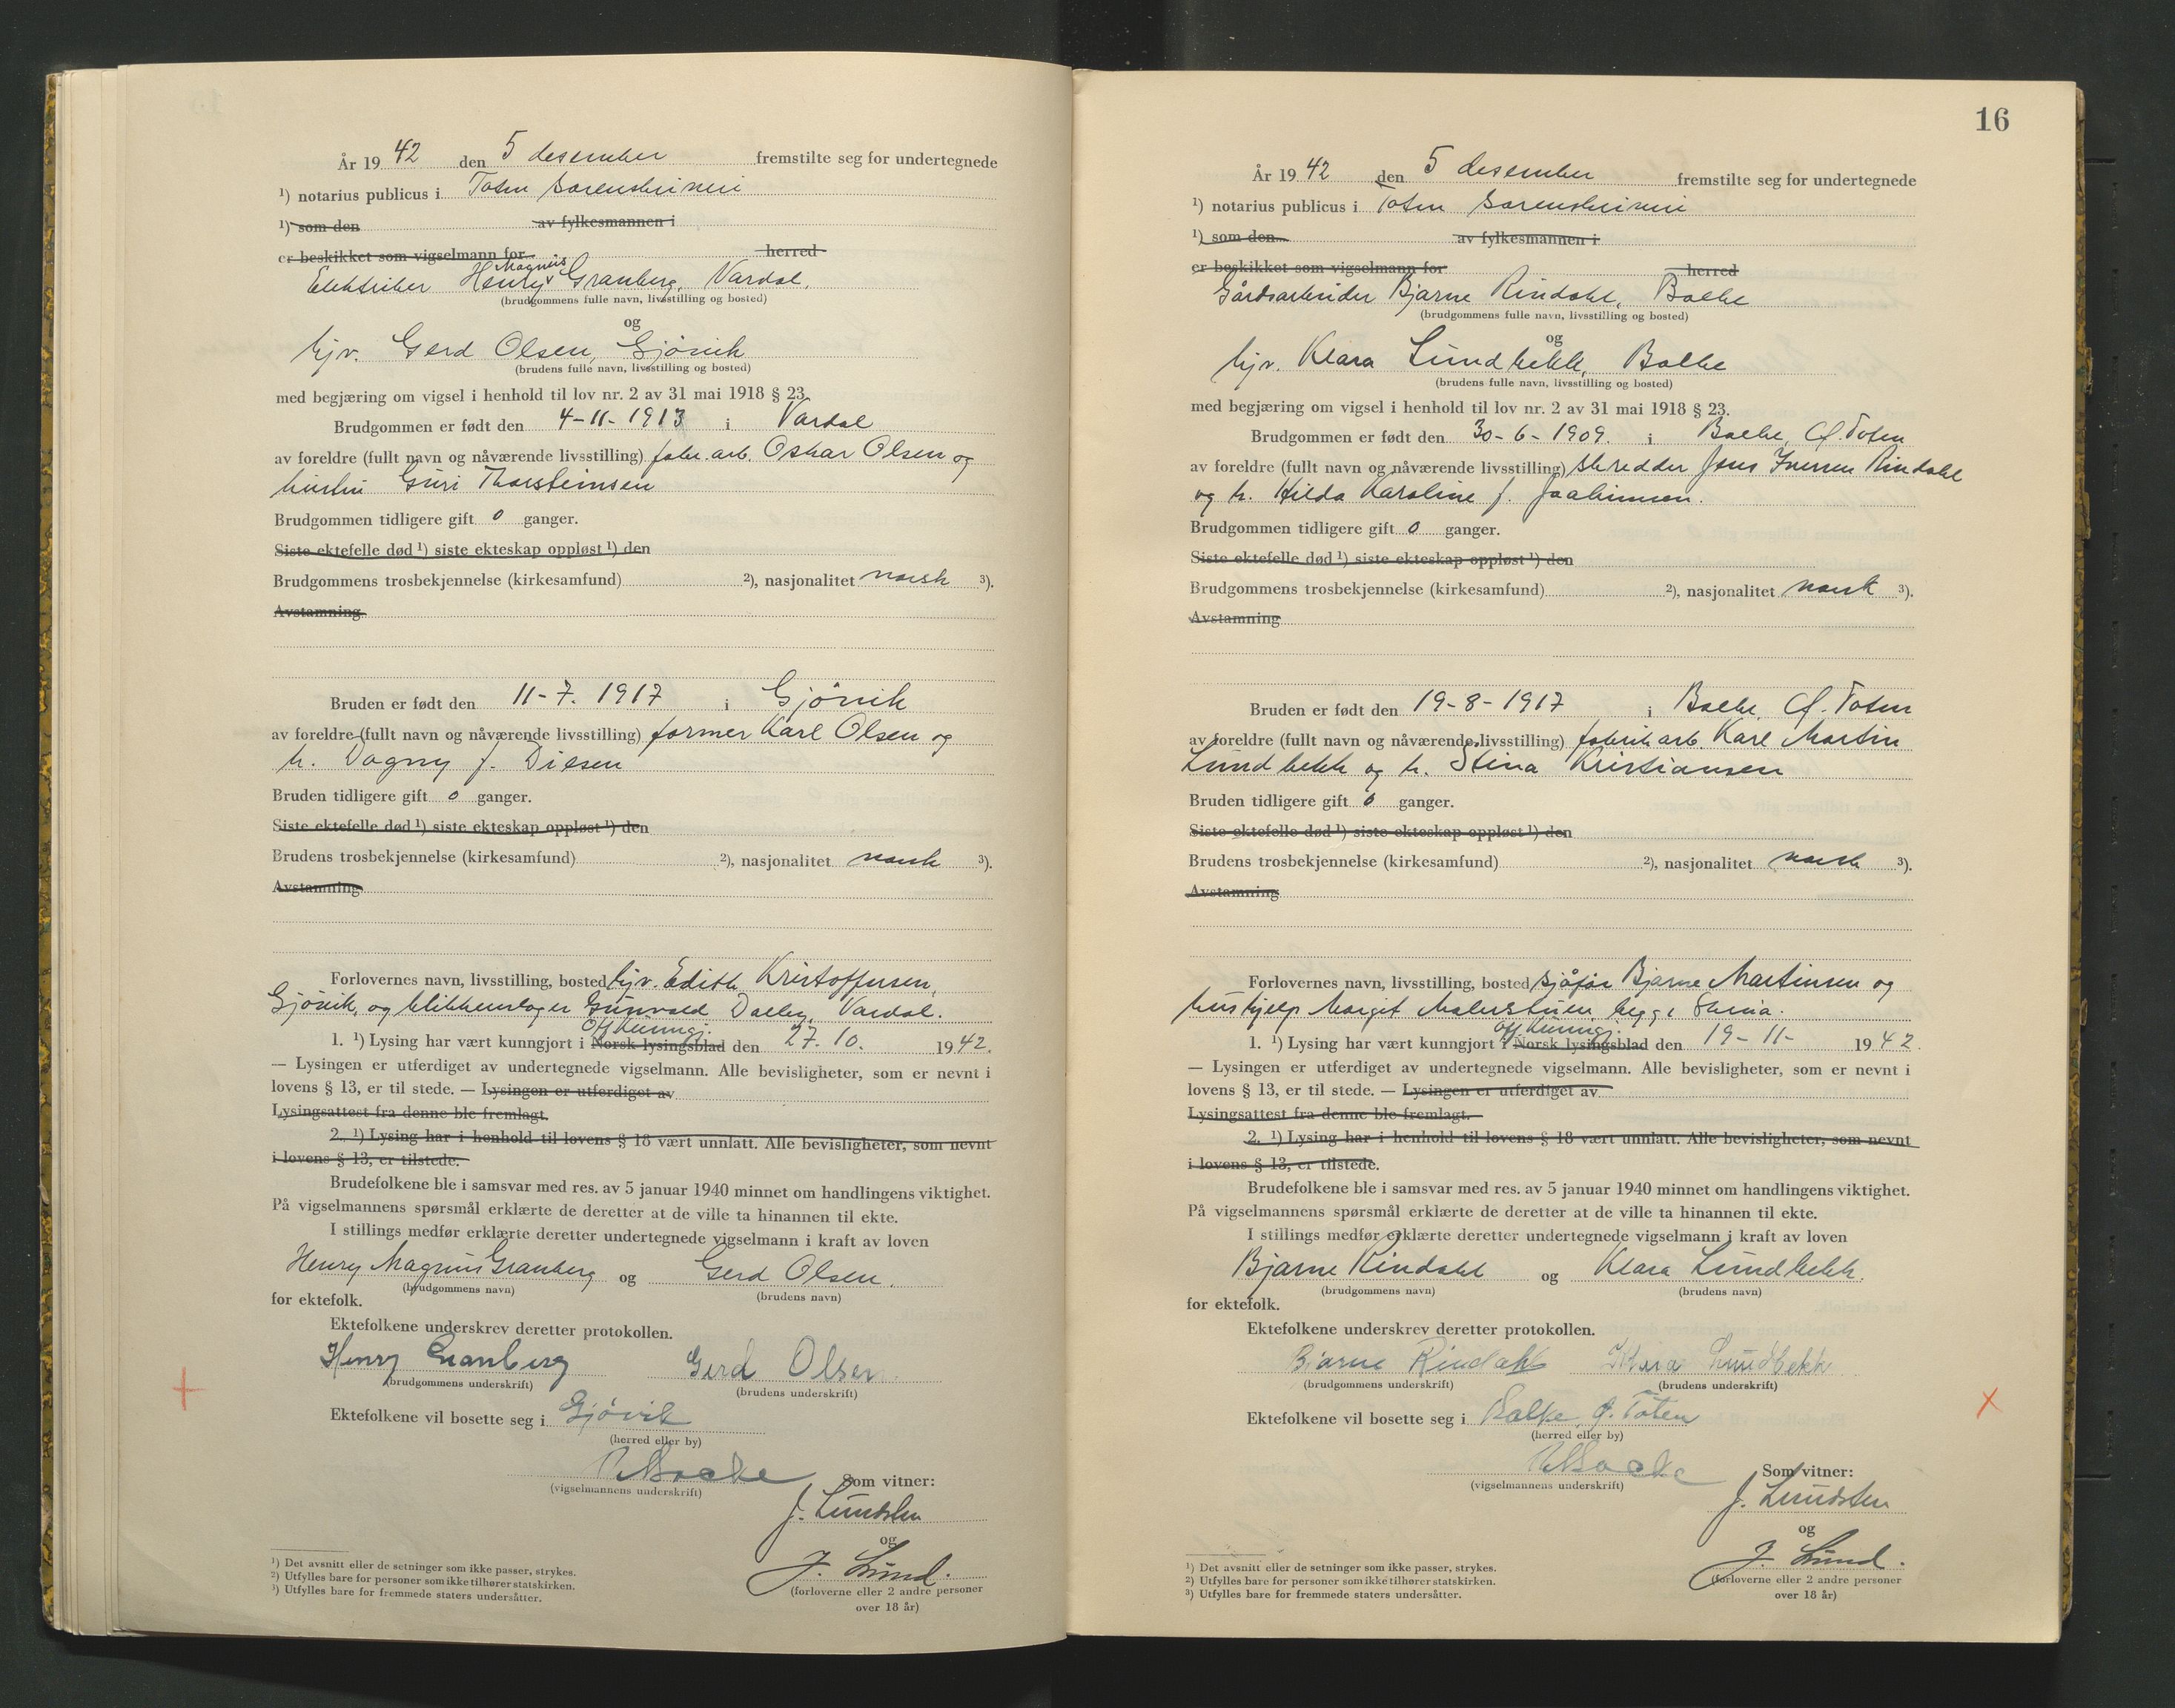 År 19 42 den 5 desember fremstilte seg for undertegnede
¹) notarius publicus i Toten sorenskriveri
¹) som den av fylkesmannen i
er beskikket som vigselmann for herred
Magnus
Elektriker Henry Granberg, Vardal.
(brudgommens fulle navn, livsstilling og bosted)
og
hjv. Gerd Olsen, Gjövik
(brudens fulle navn, livsstilling og bosted)
med begjæring om vigsel i henhold til lov nr. 2 av 31 mai 1918 § 23.
Brudgommen er født den 4-11-1913 i Vardal
av foreldre (fullt navn og nåværende livsstilling) fabr. arb. Oskar Olsen og
hustru Guri Thorsteinsen
Brudgommen tidligere gift 0 ganger.
Siste ektefelle død ¹) siste ekteskap oppløst ¹) den
Brudgommens trosbekjennelse (kirkesamfund) ²), nasjonalitet norsk ³).
Avstamning
Bruden er født den 11-7. 1917 i Gjövik
av foreldre (fullt navn og nåværende livsstilling) former Karl Olsen og
h. Dagny f. Diesen
Bruden tidligere gift 0 ganger.
Siste ektefelle død ¹) siste ekteskap oppløst ¹) den
Brudens trosbekjennelse (kirkesamfund) ²), nasjonalitet norsk ³).
Avstamning
Forlovernes navn, livsstilling, bosted hjv. Edith Kristoffersen,
Gjövik, og blikkenslager Gunvald Dalby, Vardal.
Off. kunngj.
1. ¹) Lysing har vært kunngjort i Norsk lysingsblad den 27. 10. 19 42.
— Lysingen er utferdiget av undertegnede vigselmann. Alle bevisligheter, som er nevnt i
lovens § 13, er til stede. — Lysingen er utferdiget av
Lysingsattest fra denne ble fremlagt.
2. ¹) Lysing har i henhold til lovens § 18 vært unnlatt. Alle bevisligheter, som nevnt
i lovens § 13, er tilstede.
Brudefolkene ble i samsvar med res. av 5 januar 1940 minnet om handlingens viktighet.
På vigselmannens spørsmål erklærte de deretter at de ville ta hinannen til ekte.
I stillings medfør erklærte deretter undertegnede vigselmann i kraft av loven
Henry Magnus Granberg og Gerd Olsen.
(brudgommens navn) (brudens navn)
for ektefolk.
Ektefolkene underskrev deretter protokollen.
Henry Granberg Gerd Olsen.
(brudgommens underskrift) (brudens underskrift)
Ektefolkene vil bosette seg i Gjövik
(herred eller by)
Som vitner:
(vigselmannens underskrift)
J. Lundsten
og
J. Lund.
(forloverne eller 2 andre personer
over 18 år)
¹) Det avsnitt eller de setninger som ikke passer, strykes.
²) Utfylles bare for personer som ikke tilhører statskirken.
³) Utfylles bare for fremmede staters undersåtter.
16
År 19 42 den 5 desember fremstilte seg for undertegnede
¹) notarius publicus i Toten sorenskriveri
¹) som den av fylkesmannen i
er beskikket som vigselmann for herred
Gårdsarbeider Bjarne Rindahl, Bolke
(brudgommens fulle navn, livsstilling og bosted)
og
hjv. Klara Lundbekk, Bolke
(brudens fulle navn, livsstilling og bosted)
med begjæring om vigsel i henhold til lov nr. 2 av 31 mai 1918 § 23.
Brudgommen er født den 30-6-1909. i Bolke, Ø. Toten
av foreldre (fullt navn og nåværende livsstilling) skredder Jens Iversen Rindahl
og h. Hilda Karoline f. Joakimsen.
Brudgommen tidligere gift 0 ganger.
Siste ektefelle død ¹) siste ekteskap oppløst ¹) den
Brudgommens trosbekjennelse (kirkesamfund) ²), nasjonalitet norsk ³).
Avstamning
Bruden er født den 19-8-1917 i Bolke, Ø. Toten
av foreldre (fullt navn og nåværende livsstilling) fabrikarb. Karl Martin
Lundbekk og h. Stina Kristiansen
Bruden tidligere gift 0 ganger.
Siste ektefelle død ¹) siste ekteskap oppløst ¹) den
Brudens trosbekjennelse (kirkesamfund) ²), nasjonalitet norsk ³).
Avstamning
Forlovernes navn, livsstilling, bosted sjåfør Bjarne Martinsen og
hushjelp Margit Malerstuen, begge Skreia.
Off. kunngj.
1. ¹) Lysing har vært kunngjort i Norsk lysingsblad den 19-11- 19 42.
— Lysingen er utferdiget av undertegnede vigselmann. Alle bevisligheter, som er nevnt i
lovens § 13, er til stede. — Lysingen er utferdiget av
Lysingsattest fra denne ble fremlagt.
2. ¹) Lysing har i henhold til lovens § 18 vært unnlatt. Alle bevisligheter, som nevnt
i lovens § 13, er tilstede.
Brudefolkene ble i samsvar med res. av 5 januar 1940 minnet om handlingens viktighet.
På vigselmannens spørsmål erklærte de deretter at de ville ta hinannen til ekte.
I stillings medfør erklærte deretter undertegnede vigselmann i kraft av loven
Bjarne Rindahl og Klara Lundbekk.
(brudgommens navn) (brudens navn)
for ektefolk.
Ektefolkene underskrev deretter protokollen.
Bjarne Rindahl Klara Lundbekk
(brudgommens underskrift) (brudens underskrift)
Ektefolkene vil bosette seg i Balke, Ø. Toten
(herred eller by)
Som vitner:
(vigselmannens underskrift)
J. Lundsten
og
J. Lund.
(forloverne eller 2 andre personer
over 18 år)
¹) Det avsnitt eller de setninger som ikke passer, strykes.
²) Utfylles bare for personer som ikke tilhører statskirken.
³) Utfylles bare for fremmede staters undersåtter.